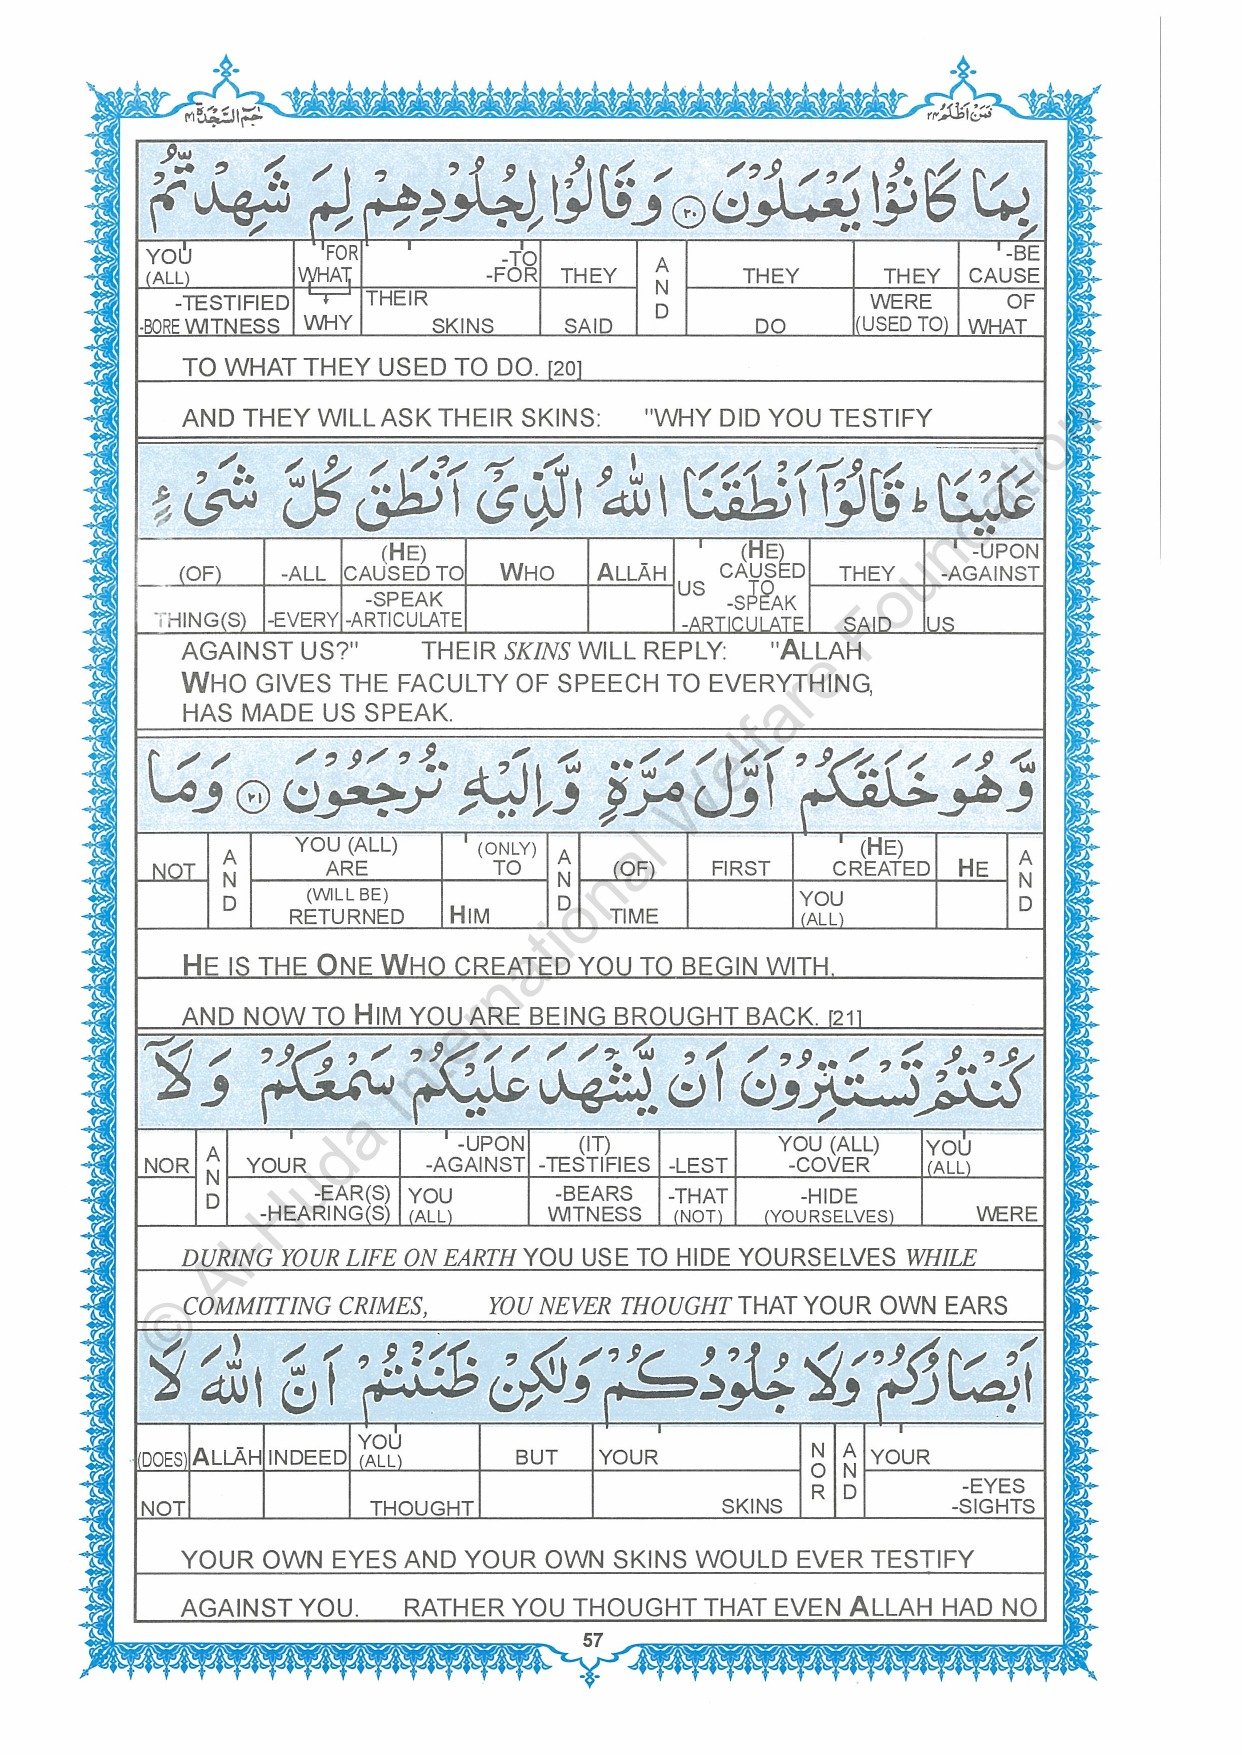 حٰمٓ السَّجْدَة ٤١
فَمَنْ اَظْلَمُ ٢٤
بِمَا كَانُوْا يَعْمَلُوْنَ ٢٠ وَقَالُوْا لِجُلُوْدِهِمْ لِمَ شَهِدْتُّمْ
YOU (ALL) FOR WHAT -TO -FOR THEY AND THEY THEY -BE CAUSE
-TESTIFIED -BORE WITNESS WHY THEIR SKINS SAID DO WERE (USED TO) OF WHAT
TO WHAT THEY USED TO DO. [20]
AND THEY WILL ASK THEIR SKINS: "WHY DID YOU TESTIFY
عَلَيْنَا ؕ قَالُوْۤا اَنْطَقَنَا اللّٰهُ الَّذِيْۤ اَنْطَقَ كُلَّ شَيْءٍ
(OF) -ALL (HE) CAUSED TO WHO ALLĀH US (HE) CAUSED TO THEY -UPON -AGAINST
THING(S) -EVERY -SPEAK -ARTICULATE -SPEAK -ARTICULATE SAID US
AGAINST US?" THEIR SKINS WILL REPLY: "ALLAH
WHO GIVES THE FACULTY OF SPEECH TO EVERYTHING,
HAS MADE US SPEAK.
وَّهُوَ خَلَقَكُمْ اَوَّلَ مَرَّةٍ وَّاِلَيْهِ تُرْجَعُوْنَ ٢١ وَمَا
NOT AND YOU (ALL) ARE (ONLY) TO AND (OF) FIRST (HE) CREATED HE AND
(WILL BE) RETURNED HIM TIME YOU (ALL)
HE IS THE ONE WHO CREATED YOU TO BEGIN WITH,
AND NOW TO HIM YOU ARE BEING BROUGHT BACK. [21]
كُنْتُمْ تَسْتَتِرُوْنَ اَنْ يَّشْهَدَ عَلَيْكُمْ سَمْعُكُمْ وَلَاۤ
NOR AND YOUR -UPON -AGAINST (IT) -TESTIFIES -LEST YOU (ALL) -COVER YOU (ALL)
-EAR(S) -HEARING(S) YOU (ALL) -BEARS WITNESS -THAT (NOT) -HIDE (YOURSELVES) WERE
DURING YOUR LIFE ON EARTH YOU USE TO HIDE YOURSELVES WHILE
COMMITTING CRIMES, YOU NEVER THOUGHT THAT YOUR OWN EARS
اَبْصَارُكُمْ وَلَا جُلُوْدُكُمْ وَلٰكِنْ ظَنَنْتُمْ اَنَّ اللّٰهَ لَا
(DOES) ALLĀH INDEED YOU (ALL) BUT YOUR NOR AND YOUR
NOT THOUGHT SKINS -EYES -SIGHTS
YOUR OWN EYES AND YOUR OWN SKINS WOULD EVER TESTIFY
AGAINST YOU. RATHER YOU THOUGHT THAT EVEN ALLAH HAD NO
57
© Al-Huda International Welfare Foundation